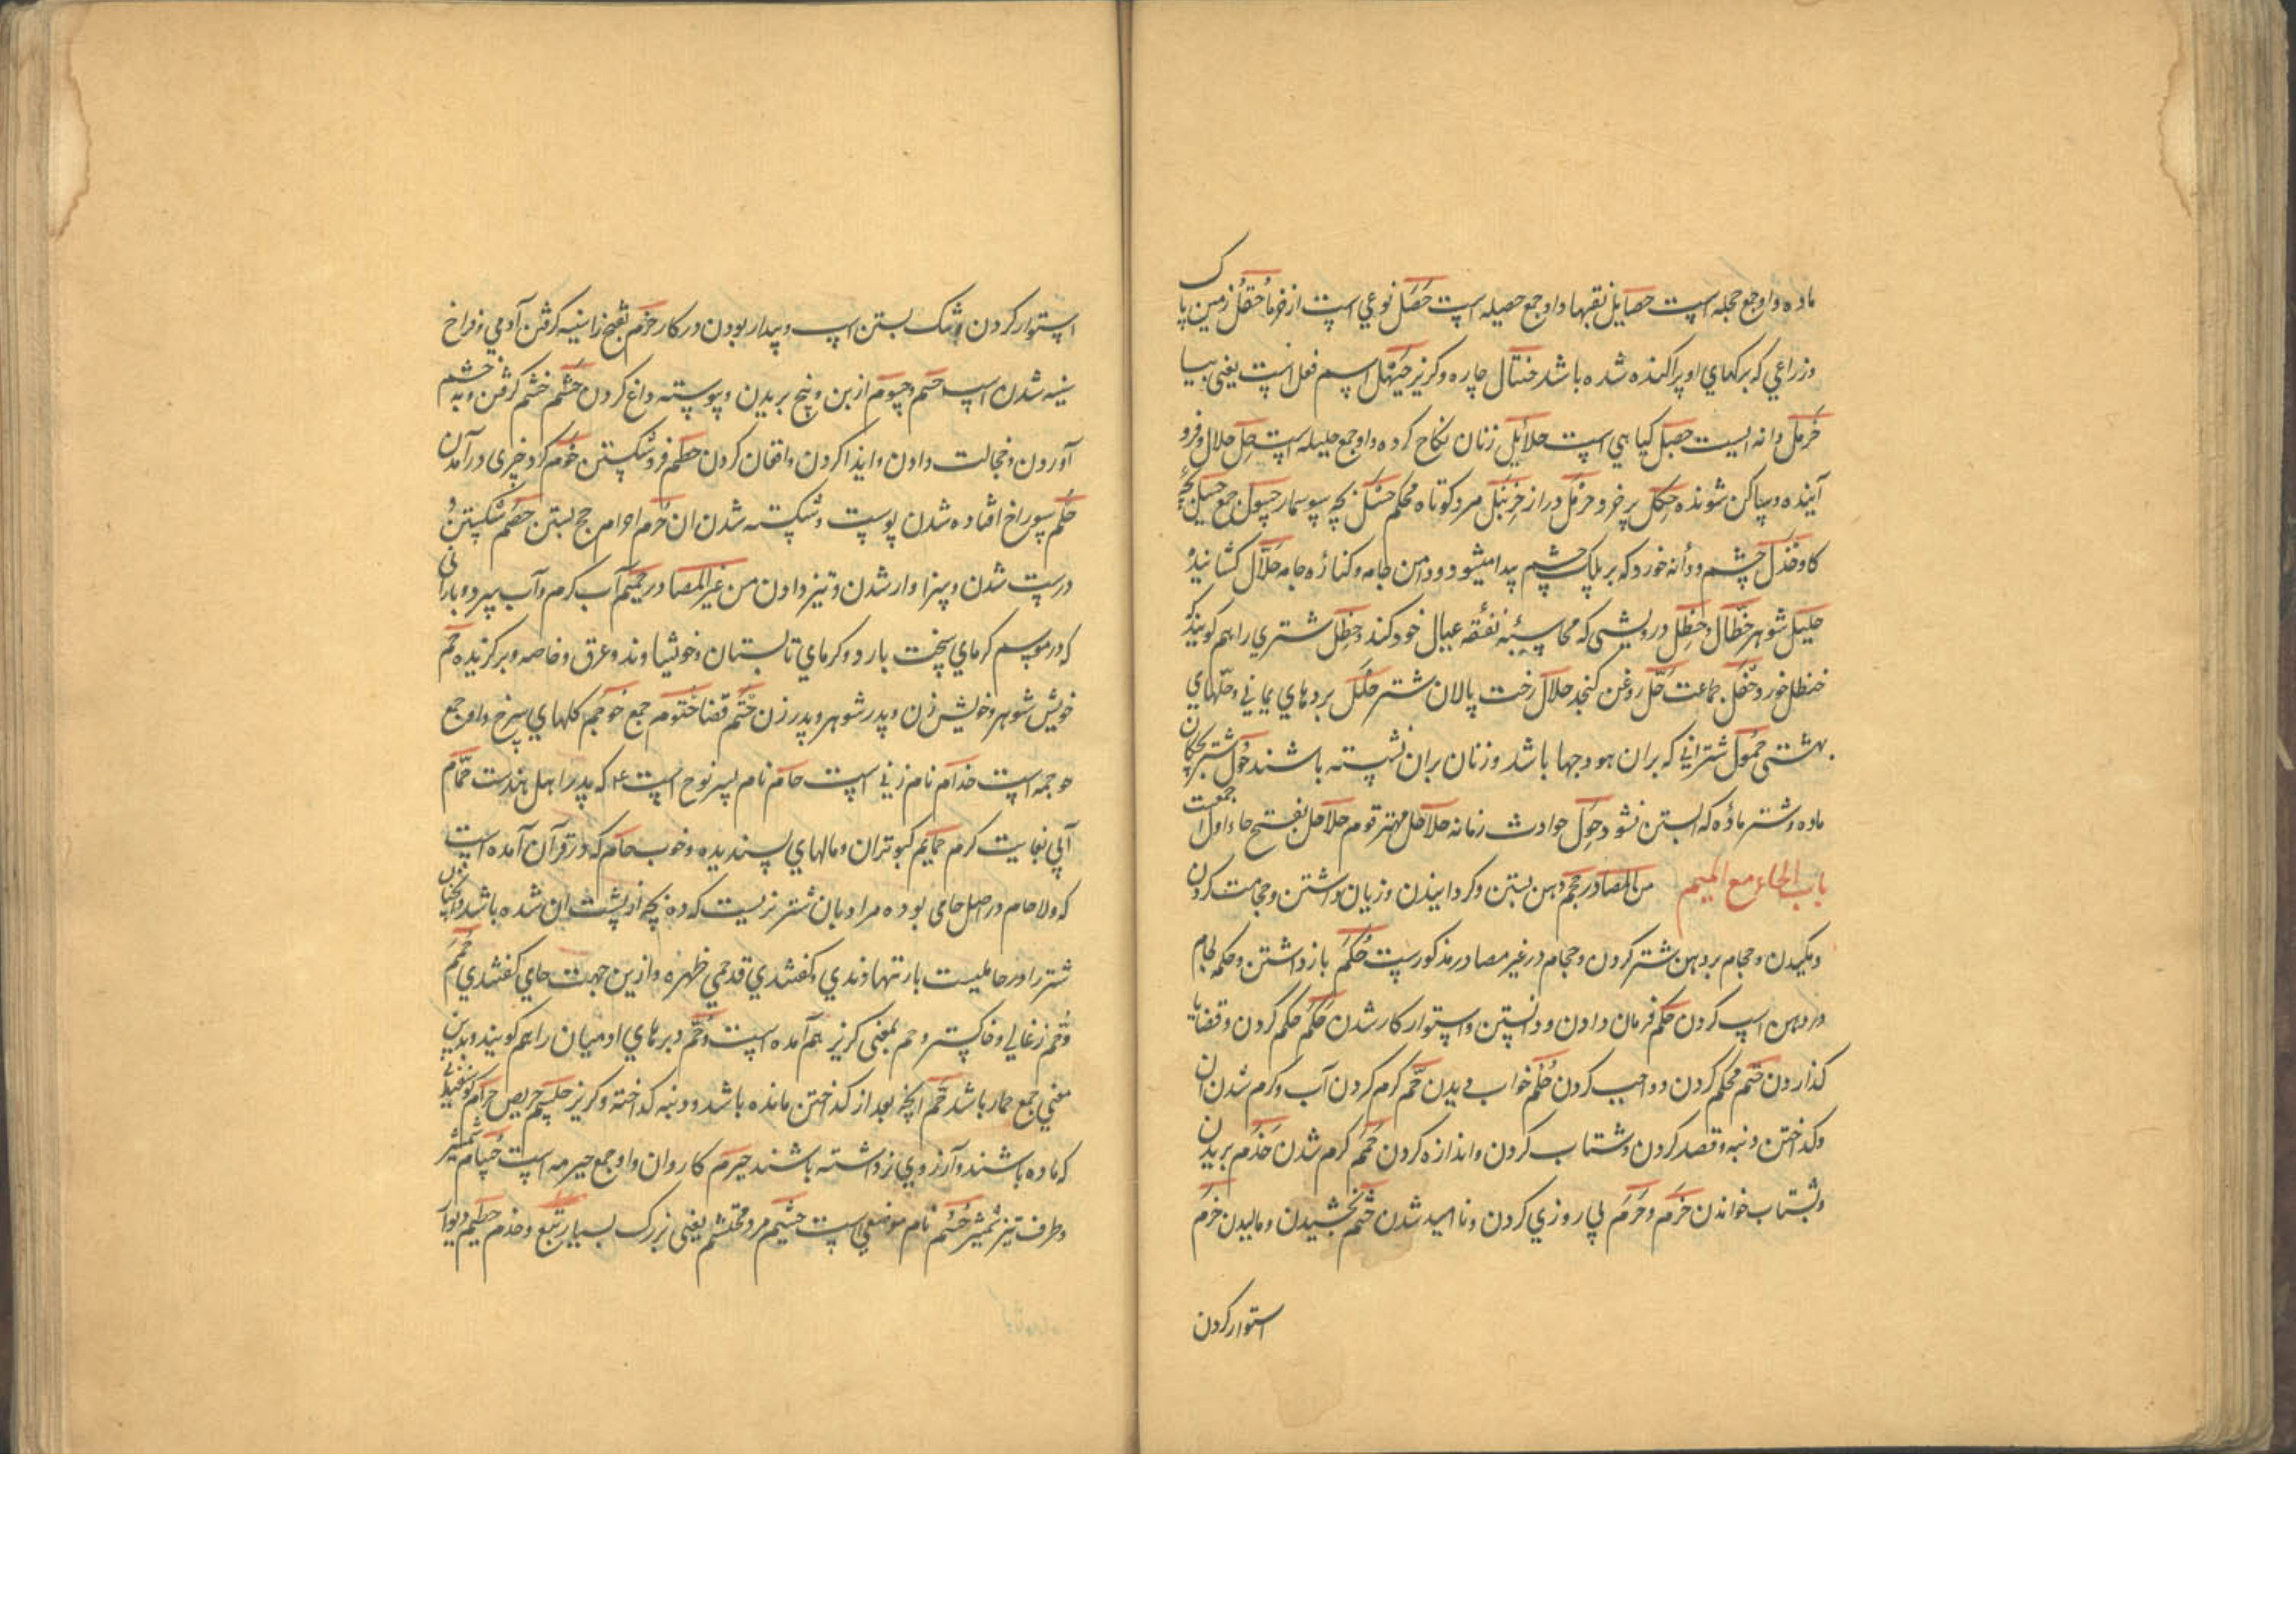 ماده و او جمع حجله است حصایل نقبها و او جمع حصیله است حصل نوعی است از خرما حقل زمین پاک
و زراعی که برکهای او پراکنده شده باشد حنتال چاره و کریز حیهل اسم فعل است یعنی بیا
حرمل دانه ایست حصیل کیاهی است حلایل زنان نکاح کرده و او جمع حلیله است حل حلال و فرو
آینده و ساکن شونده حنکل پر خر و حزمل دراز حزنبل مرد کوتاه محکم حسل بچه سوسمار حسول جمع حسیل بچه
کاو حذل چشم و دانه خورد که بر پلک چشم پیدا میشود و دامن جامه و کناره جامه حلال کشاینده
حلیل شوهر حظال و حظل درویشی که محاسبه نفقه عیال خود کند و حظل شتری را هم کویند که
حنظل خورد حفل جماعت حل روغن کنجد حلال رخت پالان شتر حلل بردهای یمانی و حلهای
بهشتی حمول شترانی که بران هودجها باشد و زنان بران نشسته باشند حول شتر بچکان
ماده و شتر ماده که آبستن نشود حول حوادث زمانه حلاحل مهتر قوم حلاحل بفتح حاء اول جمعست
باب الحاء مع المیم من المصادر حجم دهن بستن و کردانیدن و زیان داشتن و حجامت کردن
و مکیدن و حجام بر دهن شتر کردن و حجام در غیر مصادر مذکورست حکم باز داشتن و حکمه لجام
در دهن اسپ کردن حکم فرمان دادن و دانستن و استوار کار شدن حکم حکم کردن و قضایا
کذاردن حتم محکم کردن و واجب کردن حلم خواب دیدن حم کرم کردن آب و کرم شدن آن
و کداختن دنبه و قصد کردن و شتاب کردن و اندازه کردن حمم کرم شدن حذم بریدن
و بشتاب خواندن حرم و حرم بی روزی کردن و نا امید شدن حثم بخشیدن و مالیدن حزم
استوار کردن
استوار کردن و تنک بستن اسپ و بیدار بودن در کار حزم بفتح زا سینه کرفتن آدمی و فراخ
سینه شدن اسپ حسم و حسوم از بن و بیخ بریدن و پیوسته داغ کردن حشم خشم کرفتن و به خشم
آوردن و خجالت دادن و ایذا کردن و افغان کردن حطم فرو شکستن حوم کرد چیزی در آمدن
حلم سوراخ افتاده شدن پوست و شکسته شدن ان حرم احرام حج بستن حصم شکستن و
درست شدن و سزاوار شدن و تیز دادن من غیر المصادر حمیم آب کرم و آب سرد و بارانی
که در موسم کرمای سخت بارد و کرمای تابستان و خویشاوند و عرق و خاصه و برکزیده حم
خویش شوهر و خویش زن و پدر شوهر و پدر زن حتم قضا حتوم جمع حوجم کلهای سرخ و او جمع
حوجمه است حذام نام زنی است حام نام پسر نوح است ع م که پدر اهل هندست حمام
آبی بغایت کرم حمایم کبوتران و مالهای پسندیده و خوب حام که در قرآن آمده است
که ولا حام در اصل حامی بوده مراد بان شتر نریست که ده بچه از پشت ان شده باشد
شتر را در جاهلیت بار ننهادندی و کفتندی قد حمی ظهره و ازین جهت حامی کفتندی حمم
و حم زغالی و خاکستر و حم بمعنی کریز هم آمده است و حم دبرهای ادمیان را هم کویند و بدین
معنی جمع حمار باشد حم آنچه بعد از کداختن مانده باشد و دنبه کداخته و کریز حلسم حریص حرام کوسفند
که ماده باشند و آرزوی نر داشته باشند حیرم کاروان و او جمع حیرمه است حسام شمشیر
و طرف تیز شمشیر حثم نام موضعی است حشیم مرد محتشم یعنی بزرک بسیار تبع و خدم حطیم دیوار